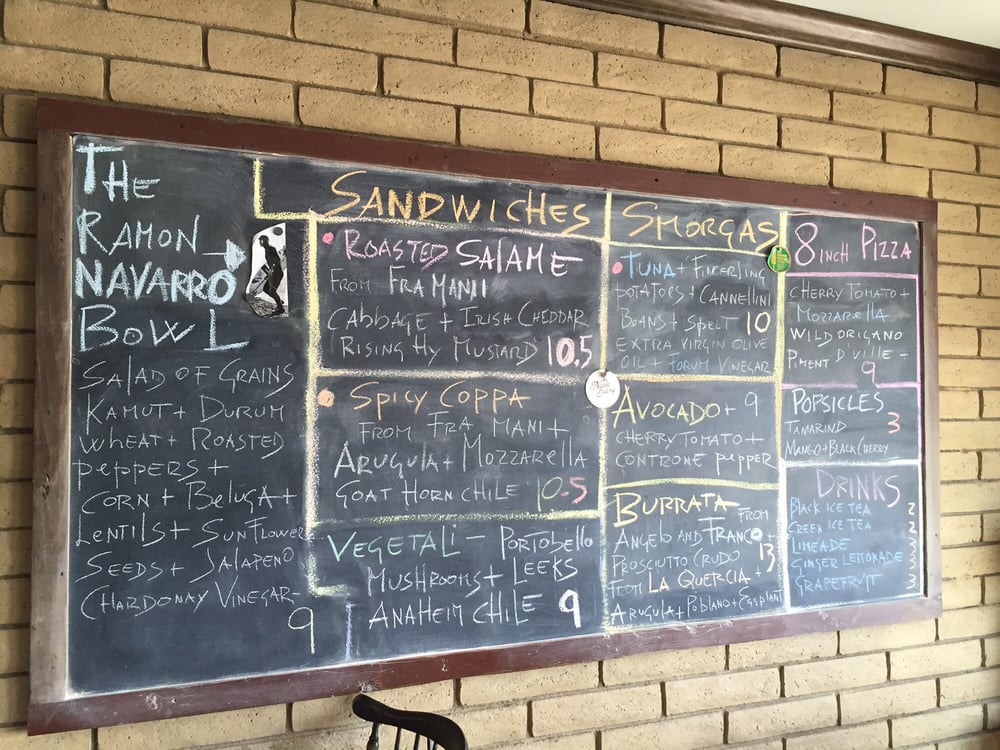 THE
RAMON
NAVARRO
BOWL
SALAD OF GRAINS
KAMUT + DURUM
WHEAT + ROASTED
PEPPERS +
CORN + BELUGA +
LENTILS + SUNFLOWER
SEEDS + JALAPENO
CHARDONAY VINEGAR -
9
SANDWICHES
ROASTED SALAME
FROM FRA MANII
CABBAGE + IRISH CHEDDAR
RISING HY MUSTARD 10.5
SPICY COPPA
FROM FRA MANI +
ARUGULA + MOZZARELLA
GOAT HORN CHILE 10.5
VEGETALI - PORTOBELLO
MUSHROOMS + LEEKS
ANAHEIM CHILE 9
SMORGAS
TUNA + FINGERLING
POTATOES + CANNELLINI
BEANS + SPELT 10
EXTRA VIRGIN OLIVE
OIL + FORUM VINEGAR
AVOCADO + 9
CHERRY TOMATO +
CONTRONE PEPPER
BURRATA FROM
ANGELO AND FRANCO +
PROSCIUTTO CRUDO 13
FROM LA QUERCIA +
ARUGULA + POBLANO + EGGPLANT
8 INCH PIZZA
CHERRY TOMATO +
MOZZARELLA
WILD ORIGANO
PIMENT D'VILLE -
9
POPSICLES
TAMARIND 3
MANGO + BLACK CHERRY
DRINKS
BLACK ICE TEA 2
GREEN ICE TEA 2
LIMEADE 3
GINGER LEMONADE 3
GRAPEFRUIT 3